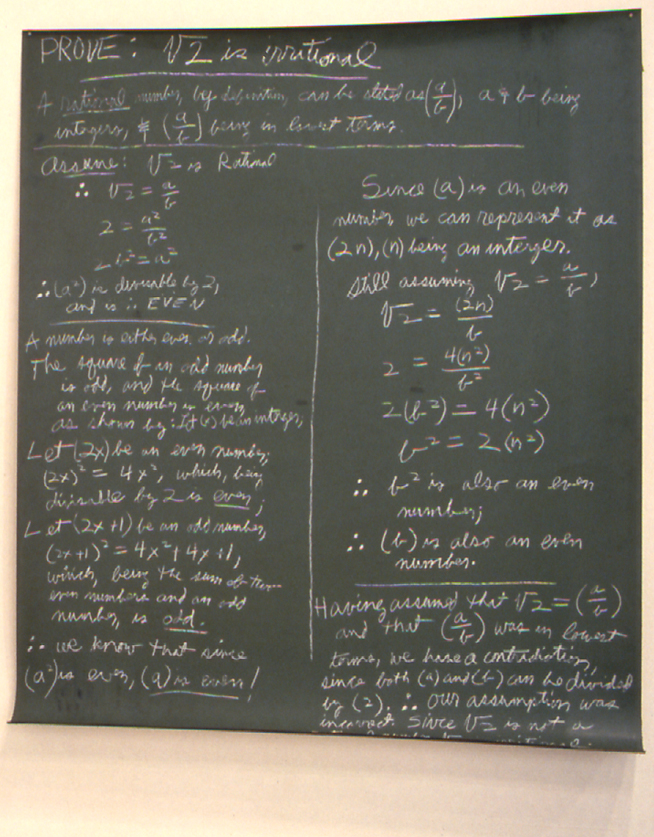 PROVE: √2 is irrational
A rational number, by definition, can be stated as (a/b), a & b being
integers, & (a/b) being in lowest terms.
Assume: √2 is Rational
∴ √2 = a/b
2 = a²/b²
2b² = a²
∴ (a²) is divisable by 2,
and is ∴ EVEN
A number is either even or odd.
The square of an odd number
is odd, and the square of
an even number is even,
as shown by: Let (x) be an interger;
Let (2x) be an even number,
(2x)² = 4x², which, being
divisable by 2 is even;
Let (2x+1) be an odd number,
(2x+1)² = 4x²+4x+1,
which, being the sum of two
even numbers and an odd
number, is odd.
∴ we know that since
(a²) is even, (a) is even!
Since (a) is an even
number we can represent it as
(2n), (n) being an interger.
Still assuming √2 = a/b,
√2 = (2n)/b
2 = 4(n²)/b²
2(b²) = 4(n²)
b² = 2(n²)
∴ b² is also an even
number;
∴ (b) is also an even
number.
Having assumed that √2 = (a/b)
and that (a/b) was in lowest
terms, we have a contradiction,
since both (a) and (b) can be divided
by (2). ∴ our assumption was
incorrect. Since √2 is not a